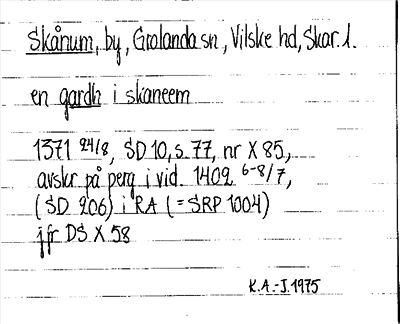 Skånum, by, Grolanda sn, Vilske hd, Skar. l.
en gardh i skaneem
1371 24/8, SD 10, s. 77, nr X 85,
avskr på perg i vid. 1402 6-8/7,
(SD 206) i RA (= SRP 1004)
jfr DS X 58
K.A.-J. 1975